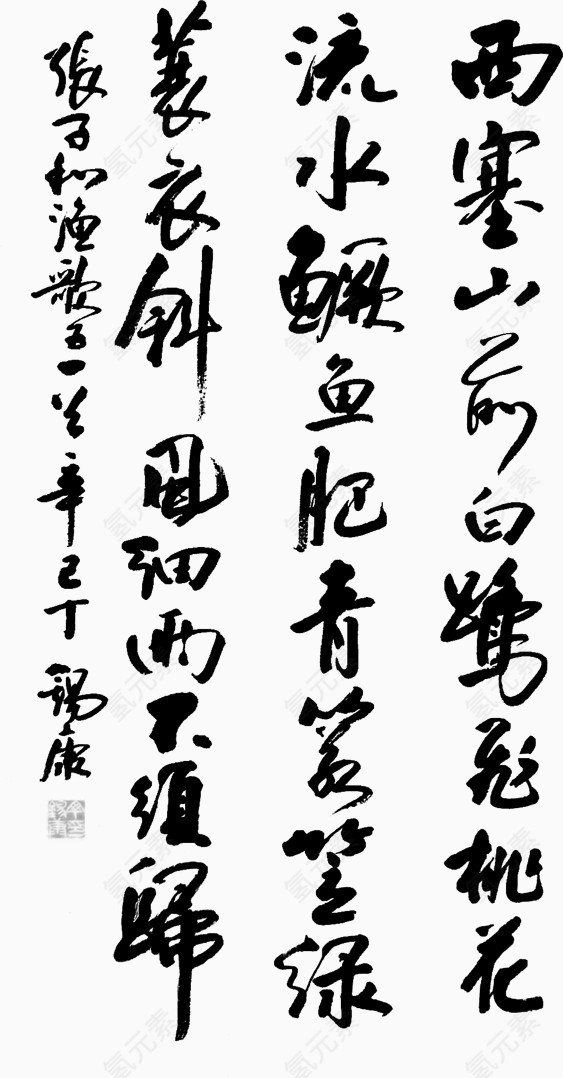 西塞山前白鹭飛桃花
流水鳜鱼肥青箬笠緑
蓑衣斜風细雨不須歸
張子和漁歌子一首辛巳丁錫康
氢元素